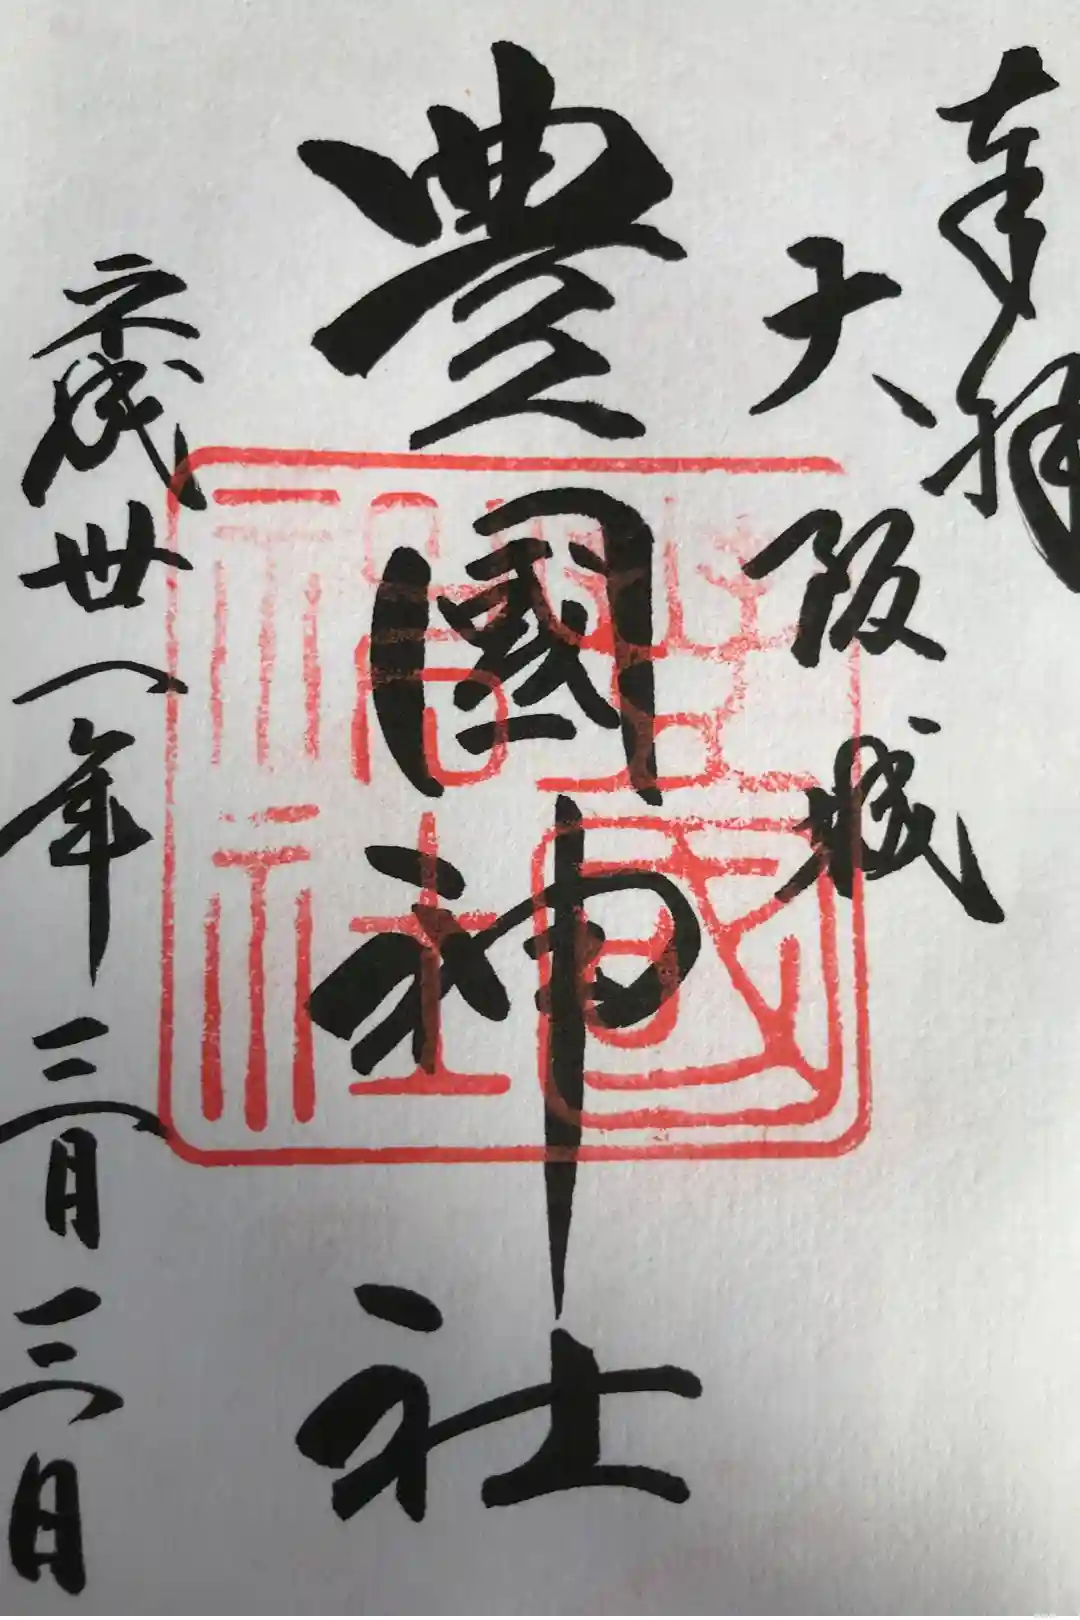 奉拝
大阪城
豊國神社
平成卅一年三月三日
豊國神社